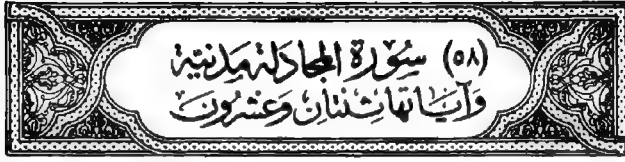 (٥٨) سُورَة المجَادلَة مَدنيَّة
وَآيَاتهَا ثنتَان وَعشرُونَ